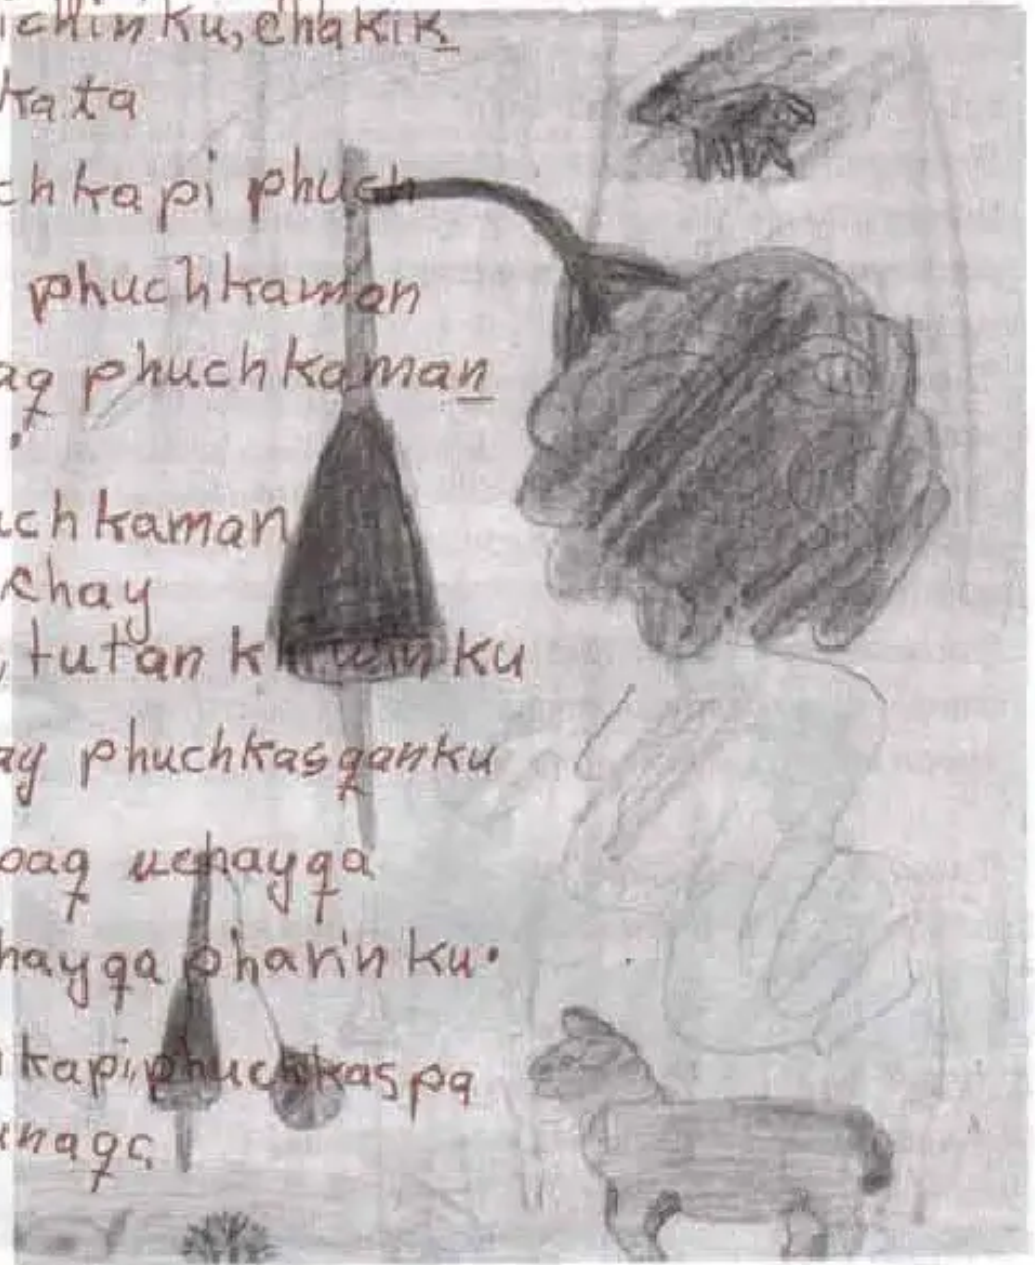 ichinku, chakik
kata
chkapi phuch
phuchkaman
aq phuchkaman
uchkaman
chay
, tutan khiwinku
ay phuchkasqanku
paq uchayqa
hayqa pharinku.
kapi phuchkaspa
unaqa